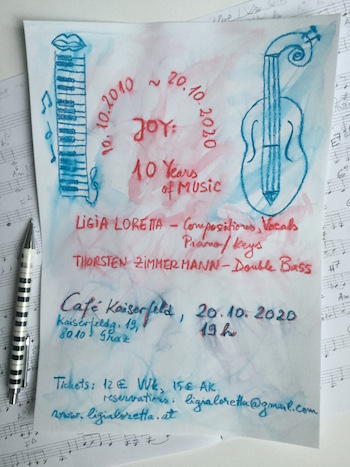 10.10.2010 ~ 20.10.2020
JOY:
10 Years
of MUSIC
LIGIA LORETTA – Compositions, Vocals
Piano/Keys
THORSTEN ZIMMERMANN – Double Bass
Café Kaiserfeld, 20.10.2020
Kaiserfeldg. 19, 19h
8010 Graz
Tickets: 12€ VVk, 15€ AK
reservations: ligialoretta@gmail.com
www.ligialoretta.at